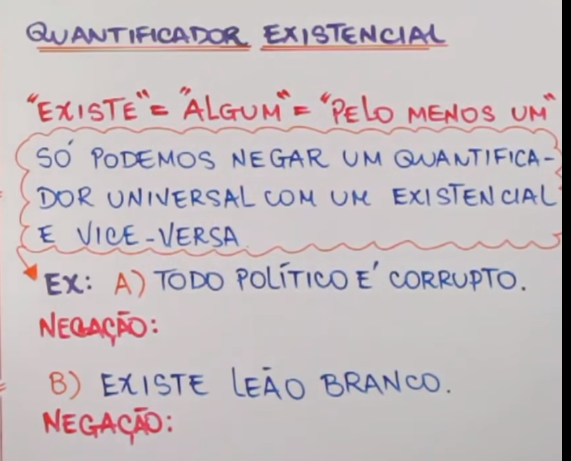 QUANTIFICADOR EXISTENCIAL
"EXISTE" = "ALGUM" = "PELO MENOS UM"
SÓ PODEMOS NEGAR UM QUANTIFICA-
DOR UNIVERSAL COM UM EXISTENCIAL
E VICE-VERSA
EX: A) TODO POLÍTICO É CORRUPTO.
NEGAÇÃO:
B) EXISTE LEÃO BRANCO.
NEGAÇÃO: